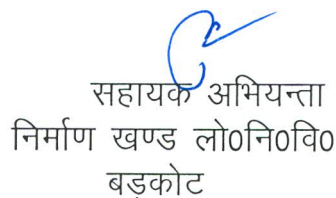 सहायक अभियन्ता
निर्माण खण्ड लो0नि0वि0
बड़कोट